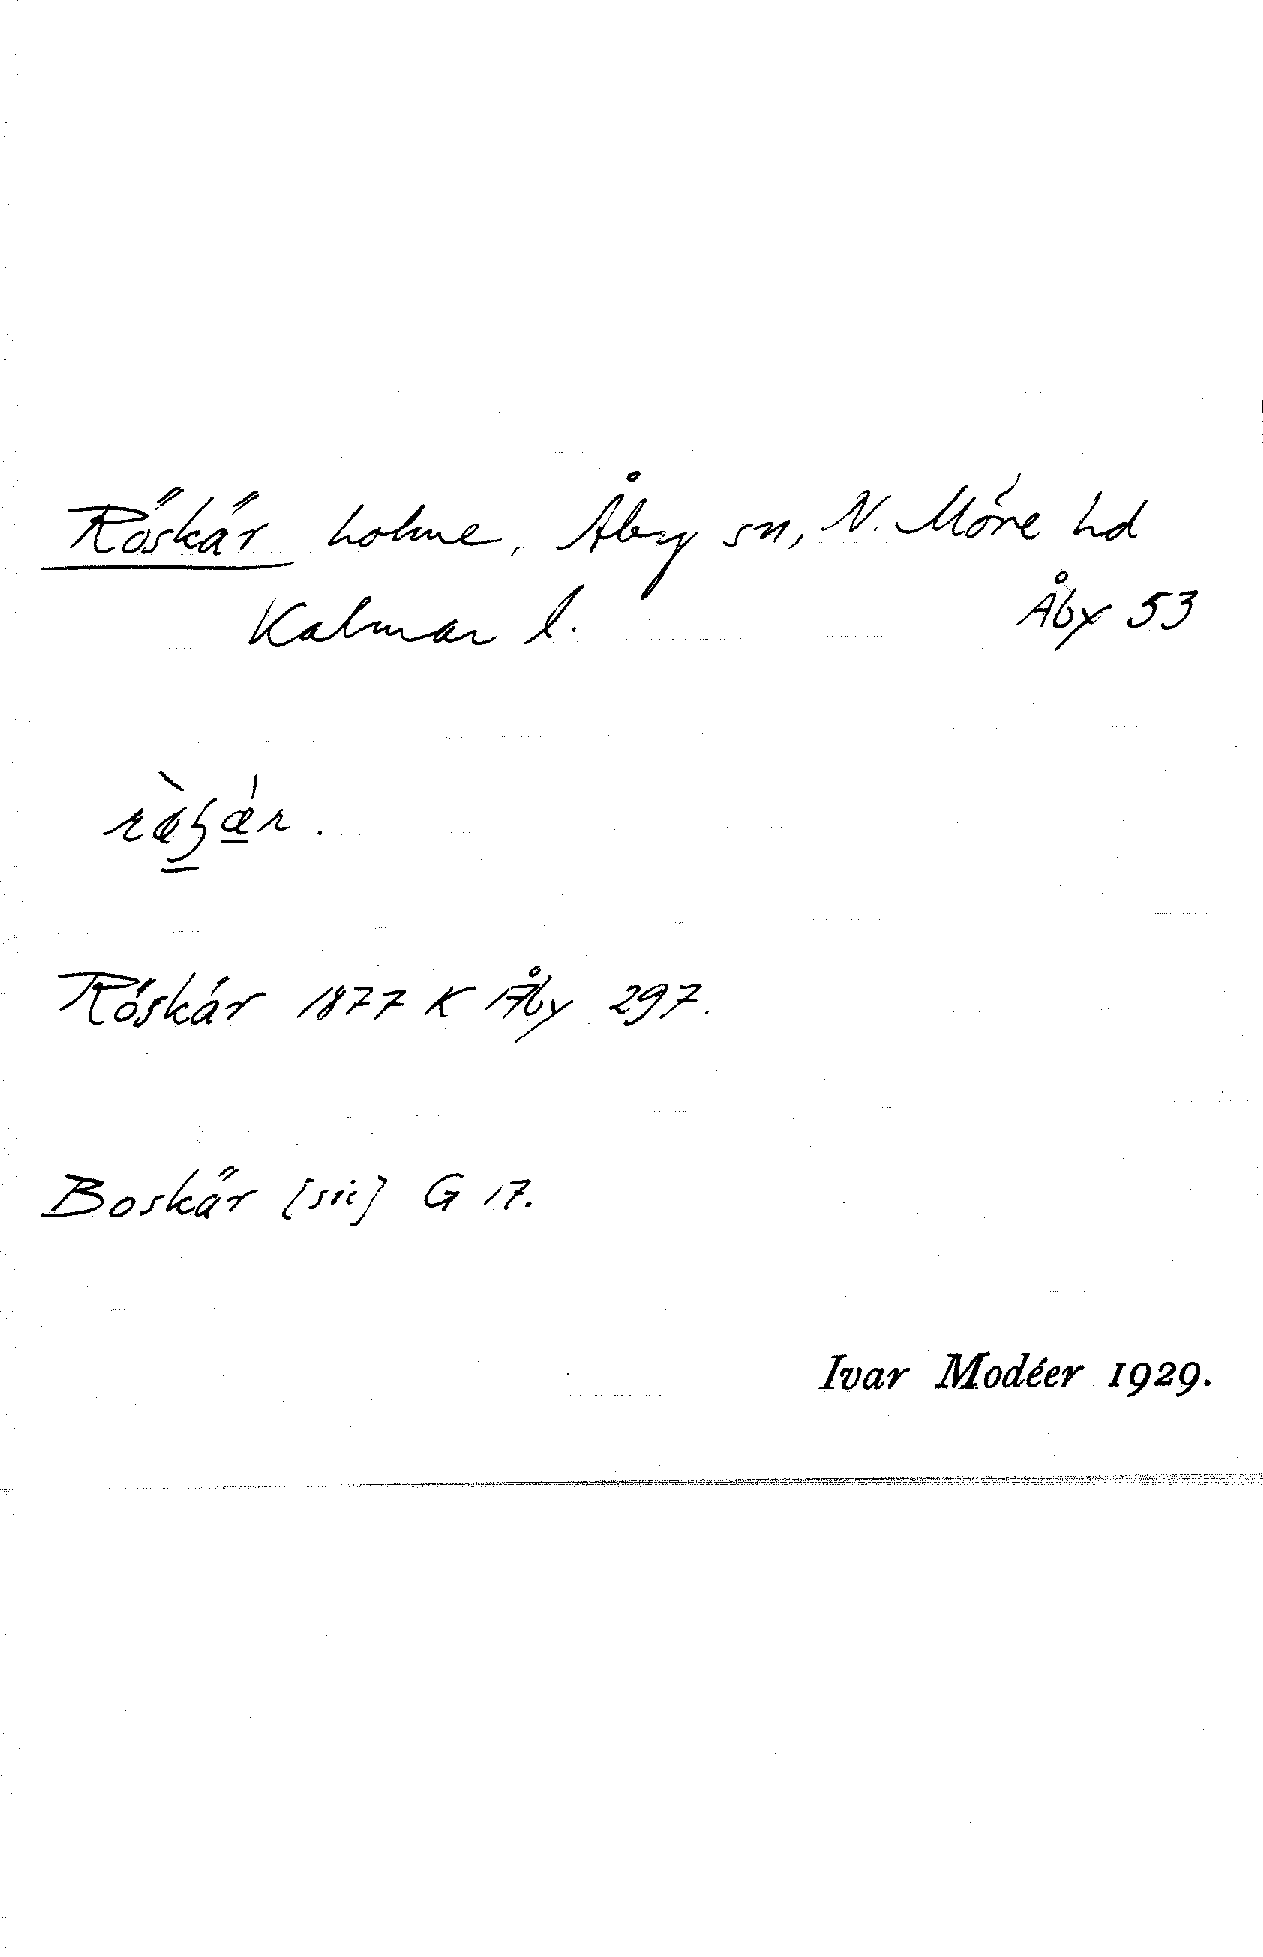 Röskär holme, Åby sn, N. Möre hd
Kalmar l.
Åby 53
Röskär 1877 K Åby 297.
Boskär [sic] G 17.
Ivar Modéer 1929.